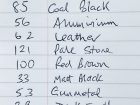 85 Coal Black
56 Aluminium
62 Leather
121 Pale Stone
100 Red Brown
33 Matt Black
53 Gunmetal